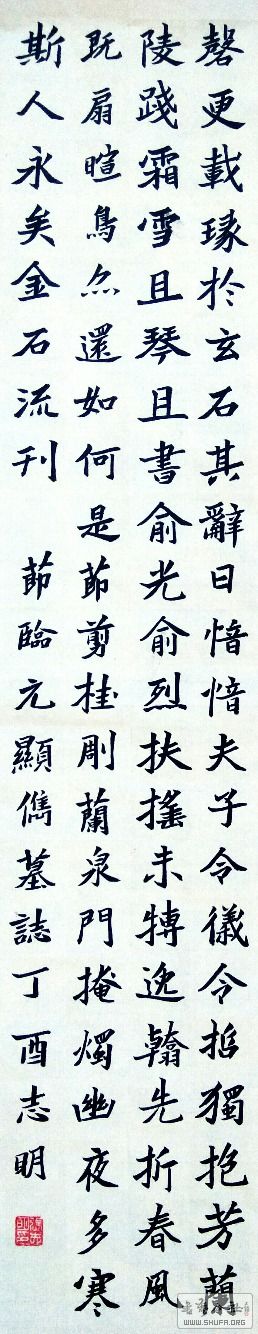 磬更載瑑於玄石其辭曰愔愔夫子令儀令哲獨抱芳蘭
陵踐霜雪且琴且書俞光俞烈扶搖未摶逸翰先折春風
既扇暄鳥亦還如何是節剪桂刷蘭泉門掩燭幽夜多寒
斯人永矣金石流刊 節臨元顯儁墓誌丁酉志明
WWW.SHUFA.ORG